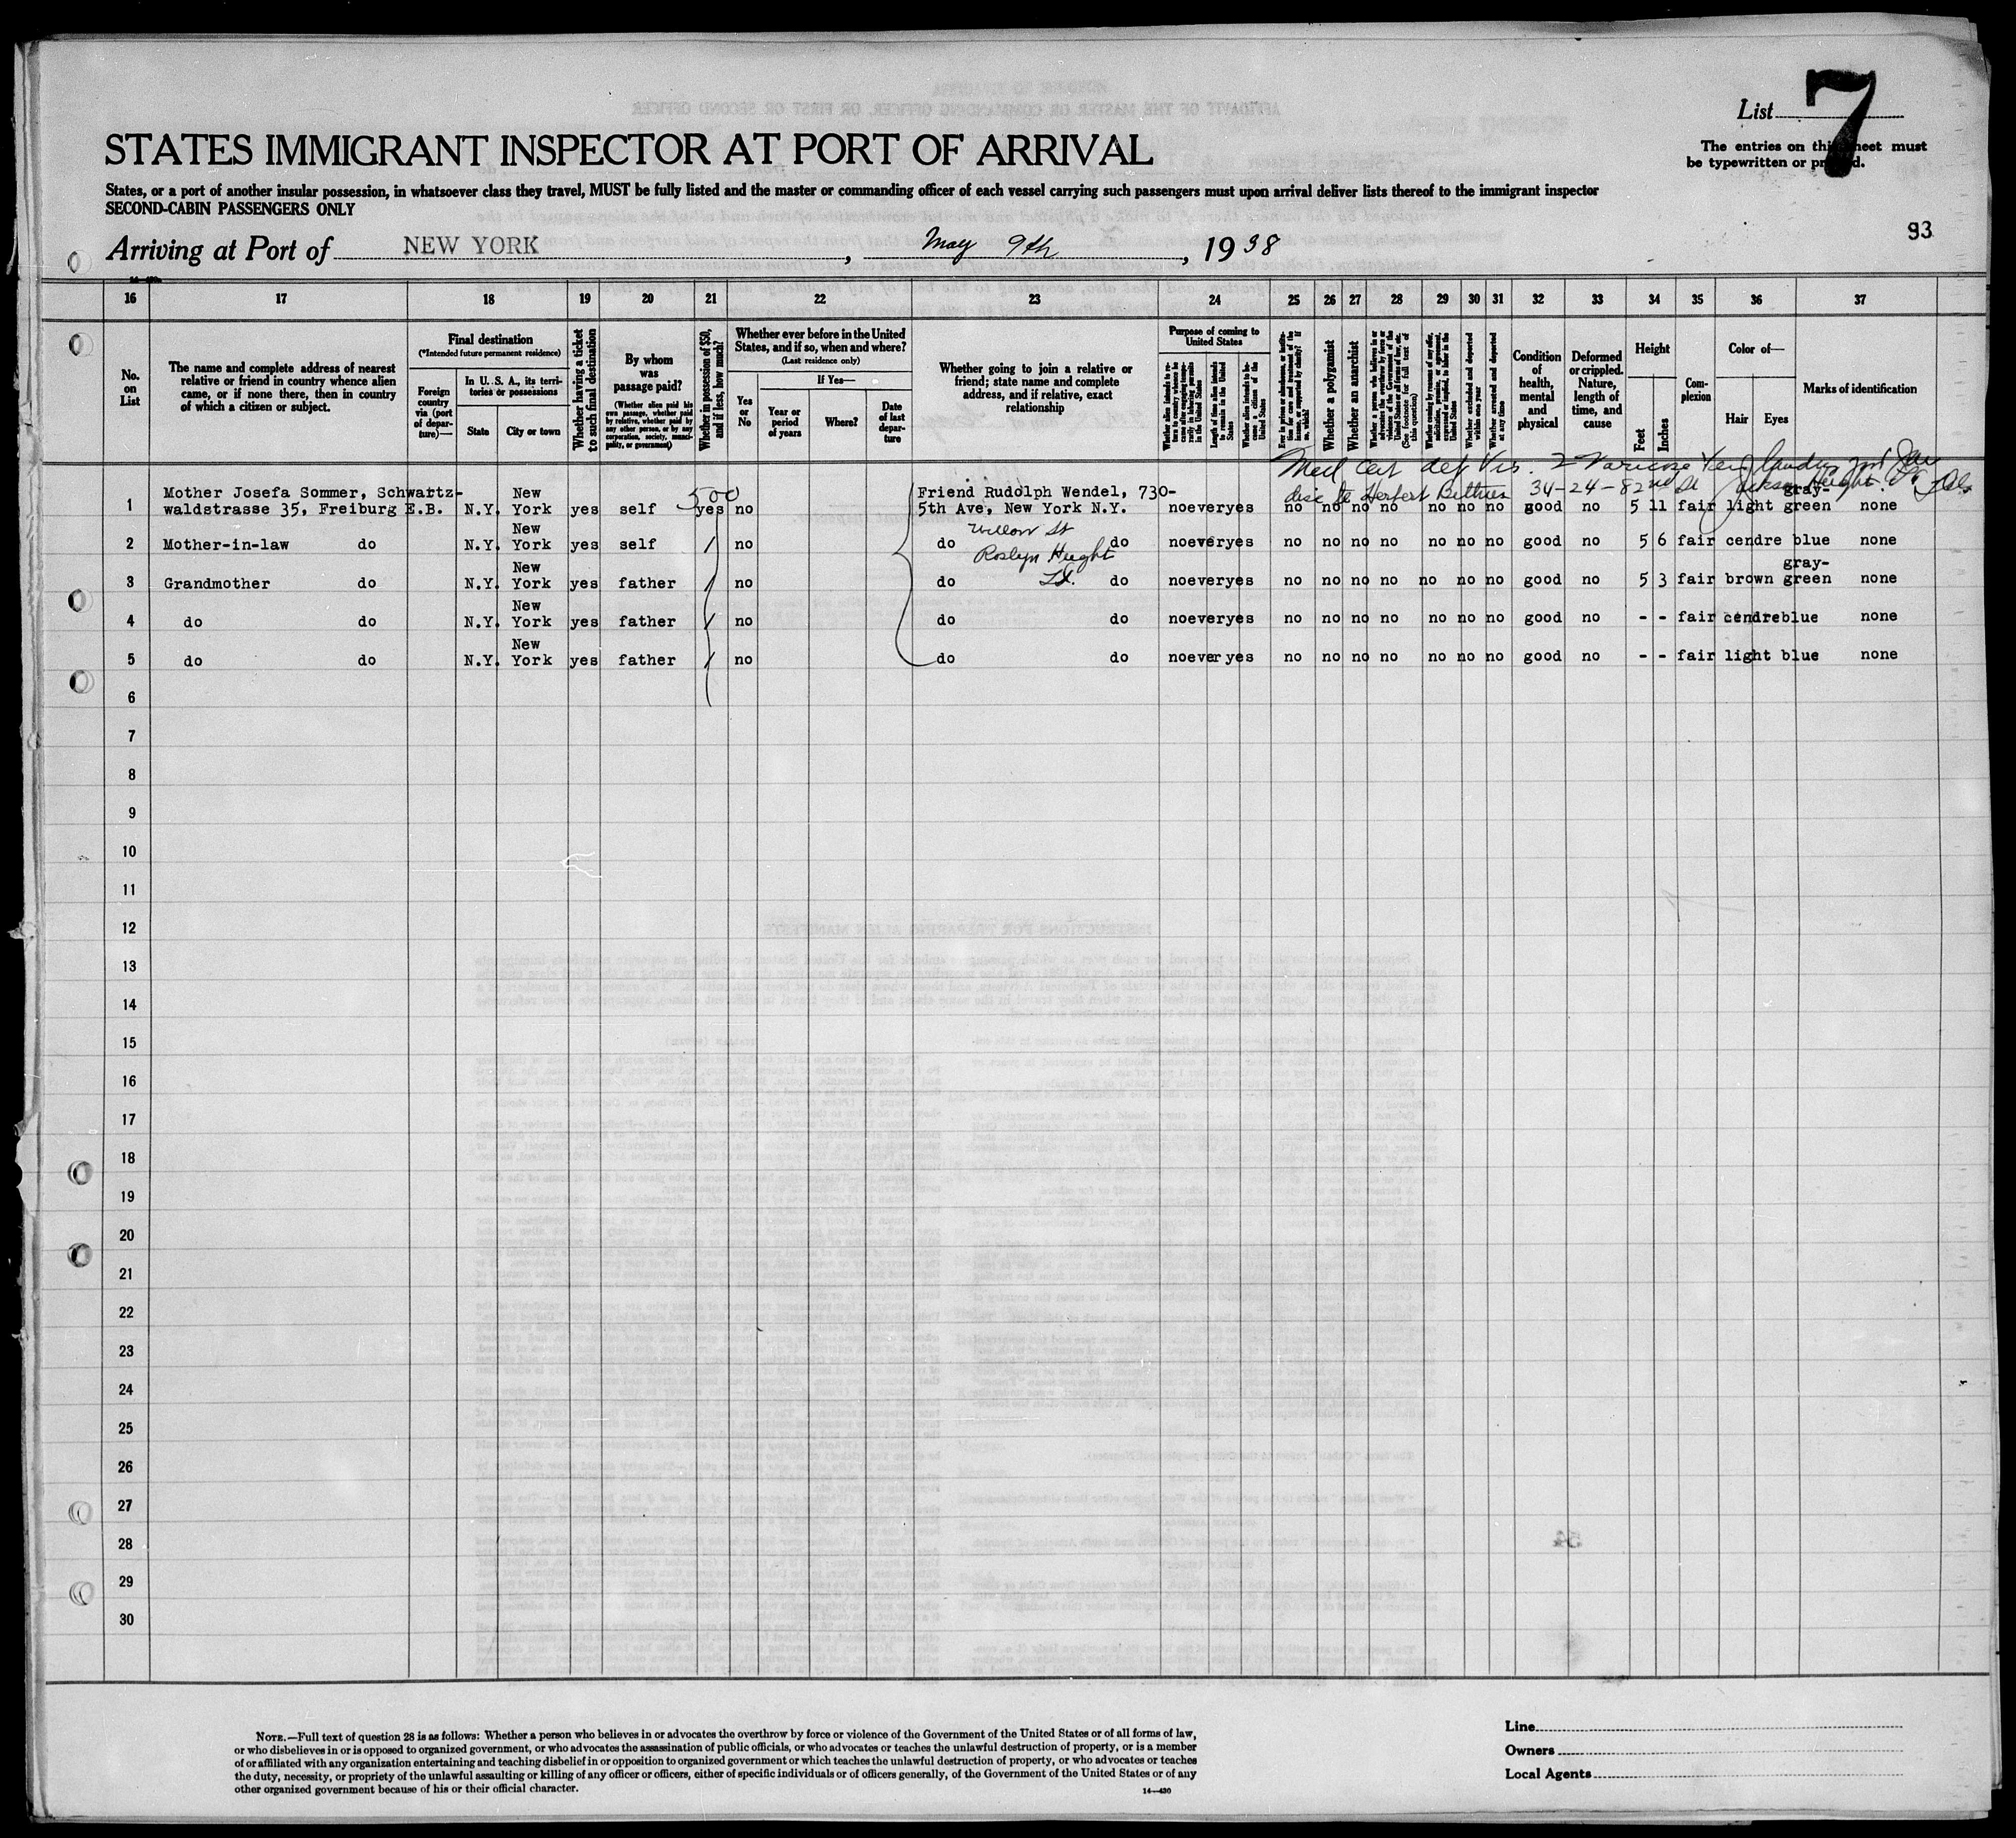 List 7
The entries on this sheet must
be typewritten or printed.
STATES IMMIGRANT INSPECTOR AT PORT OF ARRIVAL
States, or a port of another insular possession, in whatsoever class they travel, MUST be fully listed and the master or commanding officer of each vessel carrying such passengers must upon arrival deliver lists thereof to the immigrant inspector
SECOND-CABIN PASSENGERS ONLY
93
Arriving at Port of NEW YORK, May 9th, 1938
16 17 18 19 20 21 22 23 24 25 26 27 28 29 30 31 32 33 34 35 36 37
No.
on
List
The name and complete address of nearest
relative or friend in country whence alien
came, or if none there, then in country
of which a citizen or subject.
Final destination
(*Intended future permanent residence)
Foreign
country
via (port
of depar-
ture)—
In U. S. A., its terri-
tories or possessions
State
City or town
Whether having a ticket
to such final destination
By whom
was
passage paid?
(Whether alien paid his
own passage, whether paid
by relative, whether paid by
any other person, or by any
corporation, society, munici-
pality, or government)
Whether in possession of $50,
and if less, how much?
Whether ever before in the United
States, and if so, when and where?
(Last residence only)
Yes
or
No
If Yes—
Year or
period
of years
Where?
Date
of last
depar-
ture
Whether going to join a relative or
friend; state name and complete
address, and if relative, exact
relationship
Purpose of coming to
United States
Length of time alien intends
to remain in the United
States
Whether alien intends to be-
come a citizen of the
United States
Whether a polygamist
Whether an anarchist
(See footnote for full text of
this question)
Whether excluded and deported
within one year
Whether arrested and deported
at any time
Condition
of
health,
mental
and
physical
Deformed
or crippled.
Nature,
length of
time, and
cause
Height
Feet
Inches
Com-
plexion
Color of—
Hair
Eyes
Marks of identification
Med Cert def Vis. 2 Varicose
disc to Herbert 34-24-82nd St Jackson Height
1 Mother Josefa Sommer, Schwartz-
waldstrasse 35, Freiburg E.B. N.Y. New York yes self 500 yes no Friend Rudolph Wendel, 730-
5th Ave, New York N.Y. no ever yes no no no no no no no good no 5 11 fair light gray-green none
Willow St
Roslyn Height
L.I.
2 Mother-in-law do N.Y. New York yes self no do do no ever yes no no no no no no no good no 5 6 fair cendre blue none
3 Grandmother do N.Y. New York yes father no do do no ever yes no no no no no no no good no 5 3 fair brown gray-green none
4 do do N.Y. New York yes father no do do no ever yes no no no no no no no good no - - fair cendre blue none
5 do do N.Y. New York yes father no do do no ever yes no no no no no no no good no - - fair light blue none
6
7
8
9
10
11
12
13
14
15
16
17
18
19
20
21
22
23
24
25
26
27
28
29
30
NOTE.—Full text of question 28 is as follows: Whether a person who believes in or advocates the overthrow by force or violence of the Government of the United States or of all forms of law,
or who disbelieves in or is opposed to organized government, or who advocates the assassination of public officials, or who advocates or teaches the unlawful destruction of property, or is a member
of or affiliated with any organization entertaining and teaching disbelief in or opposition to organized government or which teaches the unlawful destruction of property, or who advocates or teaches
the duty, necessity, or propriety of the unlawful assaulting or killing of any officer or officers, either of specific individuals or of officers generally, of the Government of the United States or of any
other organized government because of his or their official character.
14—430
Line
Owners
Local Agents